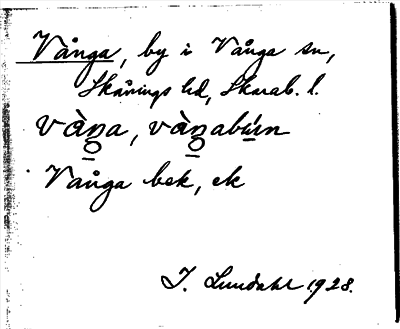 Vånga, by i Vånga sn,
Skånings hd, Skarab. l.
Vånga bek, ek
I. Lundahl 1928.